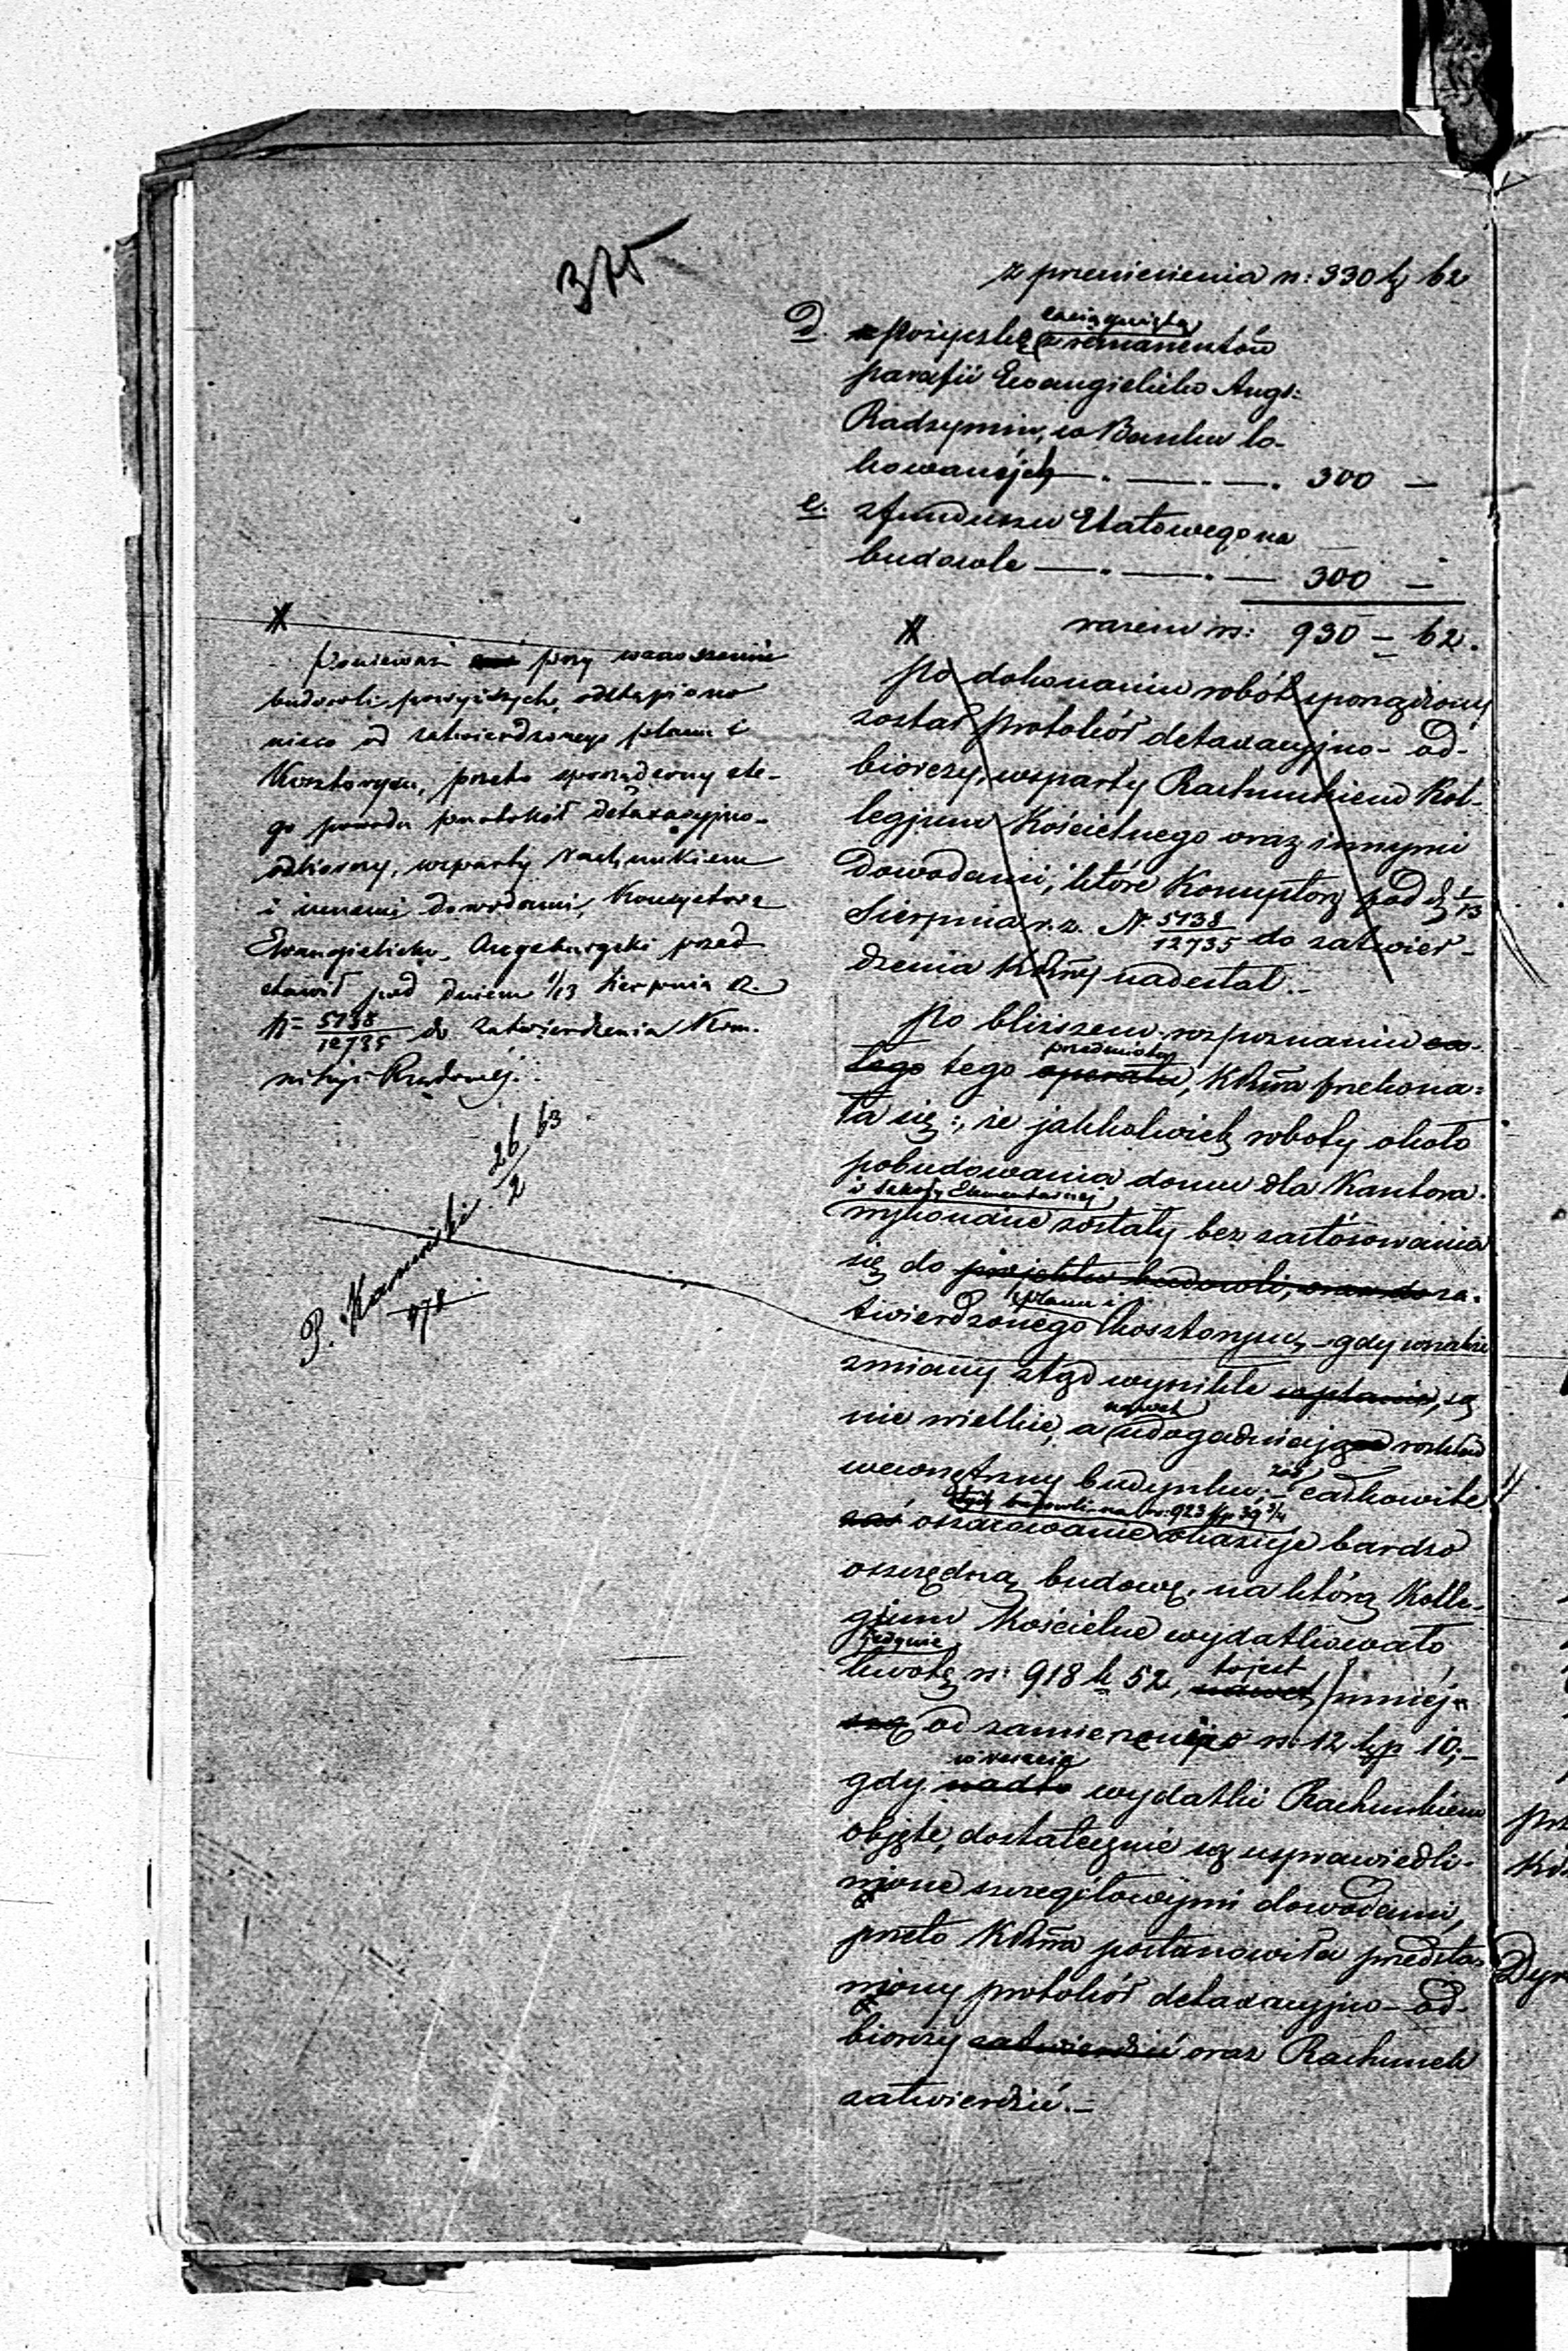 375
z przeniesienia rs: 330 k 62
D. pożyczką zaciągniętą z remanentów
parafii Ewangielicko Augs:
Radzymin, w Banku lo-
kowanéj — . — . — . 300 —
e. z funduszu Etatowego na
budowle — . — . — 300 —
razem rs: 930 — 62.
Po dokonaniu robót sporządzony
został protokół detaxacyjno-od-
biorczy, wsparty Rachunkiem Kol-
legjum Kościelnego oraz innymi
dowodami, które Konsystorz pod d. 1/13
Sierpnia r. z. N. 5738/12735 do zatwier-
dzenia nadesłał. —
Po bliższem rozpoznaniu ca-
łego tego przedmiotu operatu, przekona-
ła się:, że jakkolwiek roboty około
pobudowania domu dla Kantora
i Szkoły Elementarnéj
wykonane zostały bez zastósowania
się do projektu budowli, oraz do za-
twierdzonego planu i kosztorysu, – gdy wszakże
zmiany ztąd wynikłe w planie, są
nie wielkie, a nawet udogadniają rozkład
wewnętrzny budynku: – zaś całkowite
tyle budowli na rs: 923 kp 39 3/4
zaś oszacowanie okazuje bardzo
oszczędną budowę, na którą Kolle-
gjum Kościelne wydatkowało
jedynie
kwotę rs: 918 k 52, to jest mniéj
od zamierzonéj o rs: 12 kp 10; –
gdy wreszcie nadto wydatki Rachunkiem
objęte, dostatecznie są usprawiedli-
wione szczegółowymi dowodami,
przeto postanowiła przedsta-
wiony protokół detaxacyjno-od-
biorczy zatwierdzić oraz Rachunek
zatwierdzić. –
Ponieważ przy wznoszeniu
budowli powyższych, odstąpiono
nieco od zatwierdzonego planu i
Kosztorysu, przeto sporządzony z te-
go powodu protokół detaxacyjno-
odbiorczy, wsparty rachunkiem
i innemi dowodami, Konsystorz
Ewangielicko-Augsburgski przed-
stawił pod dniem 1/13 Sierpnia r z.
N= 5738/12735 do zatwierdzenia Kom-
missyi Rządowéj.
P. Kamiński 26/2 63
978